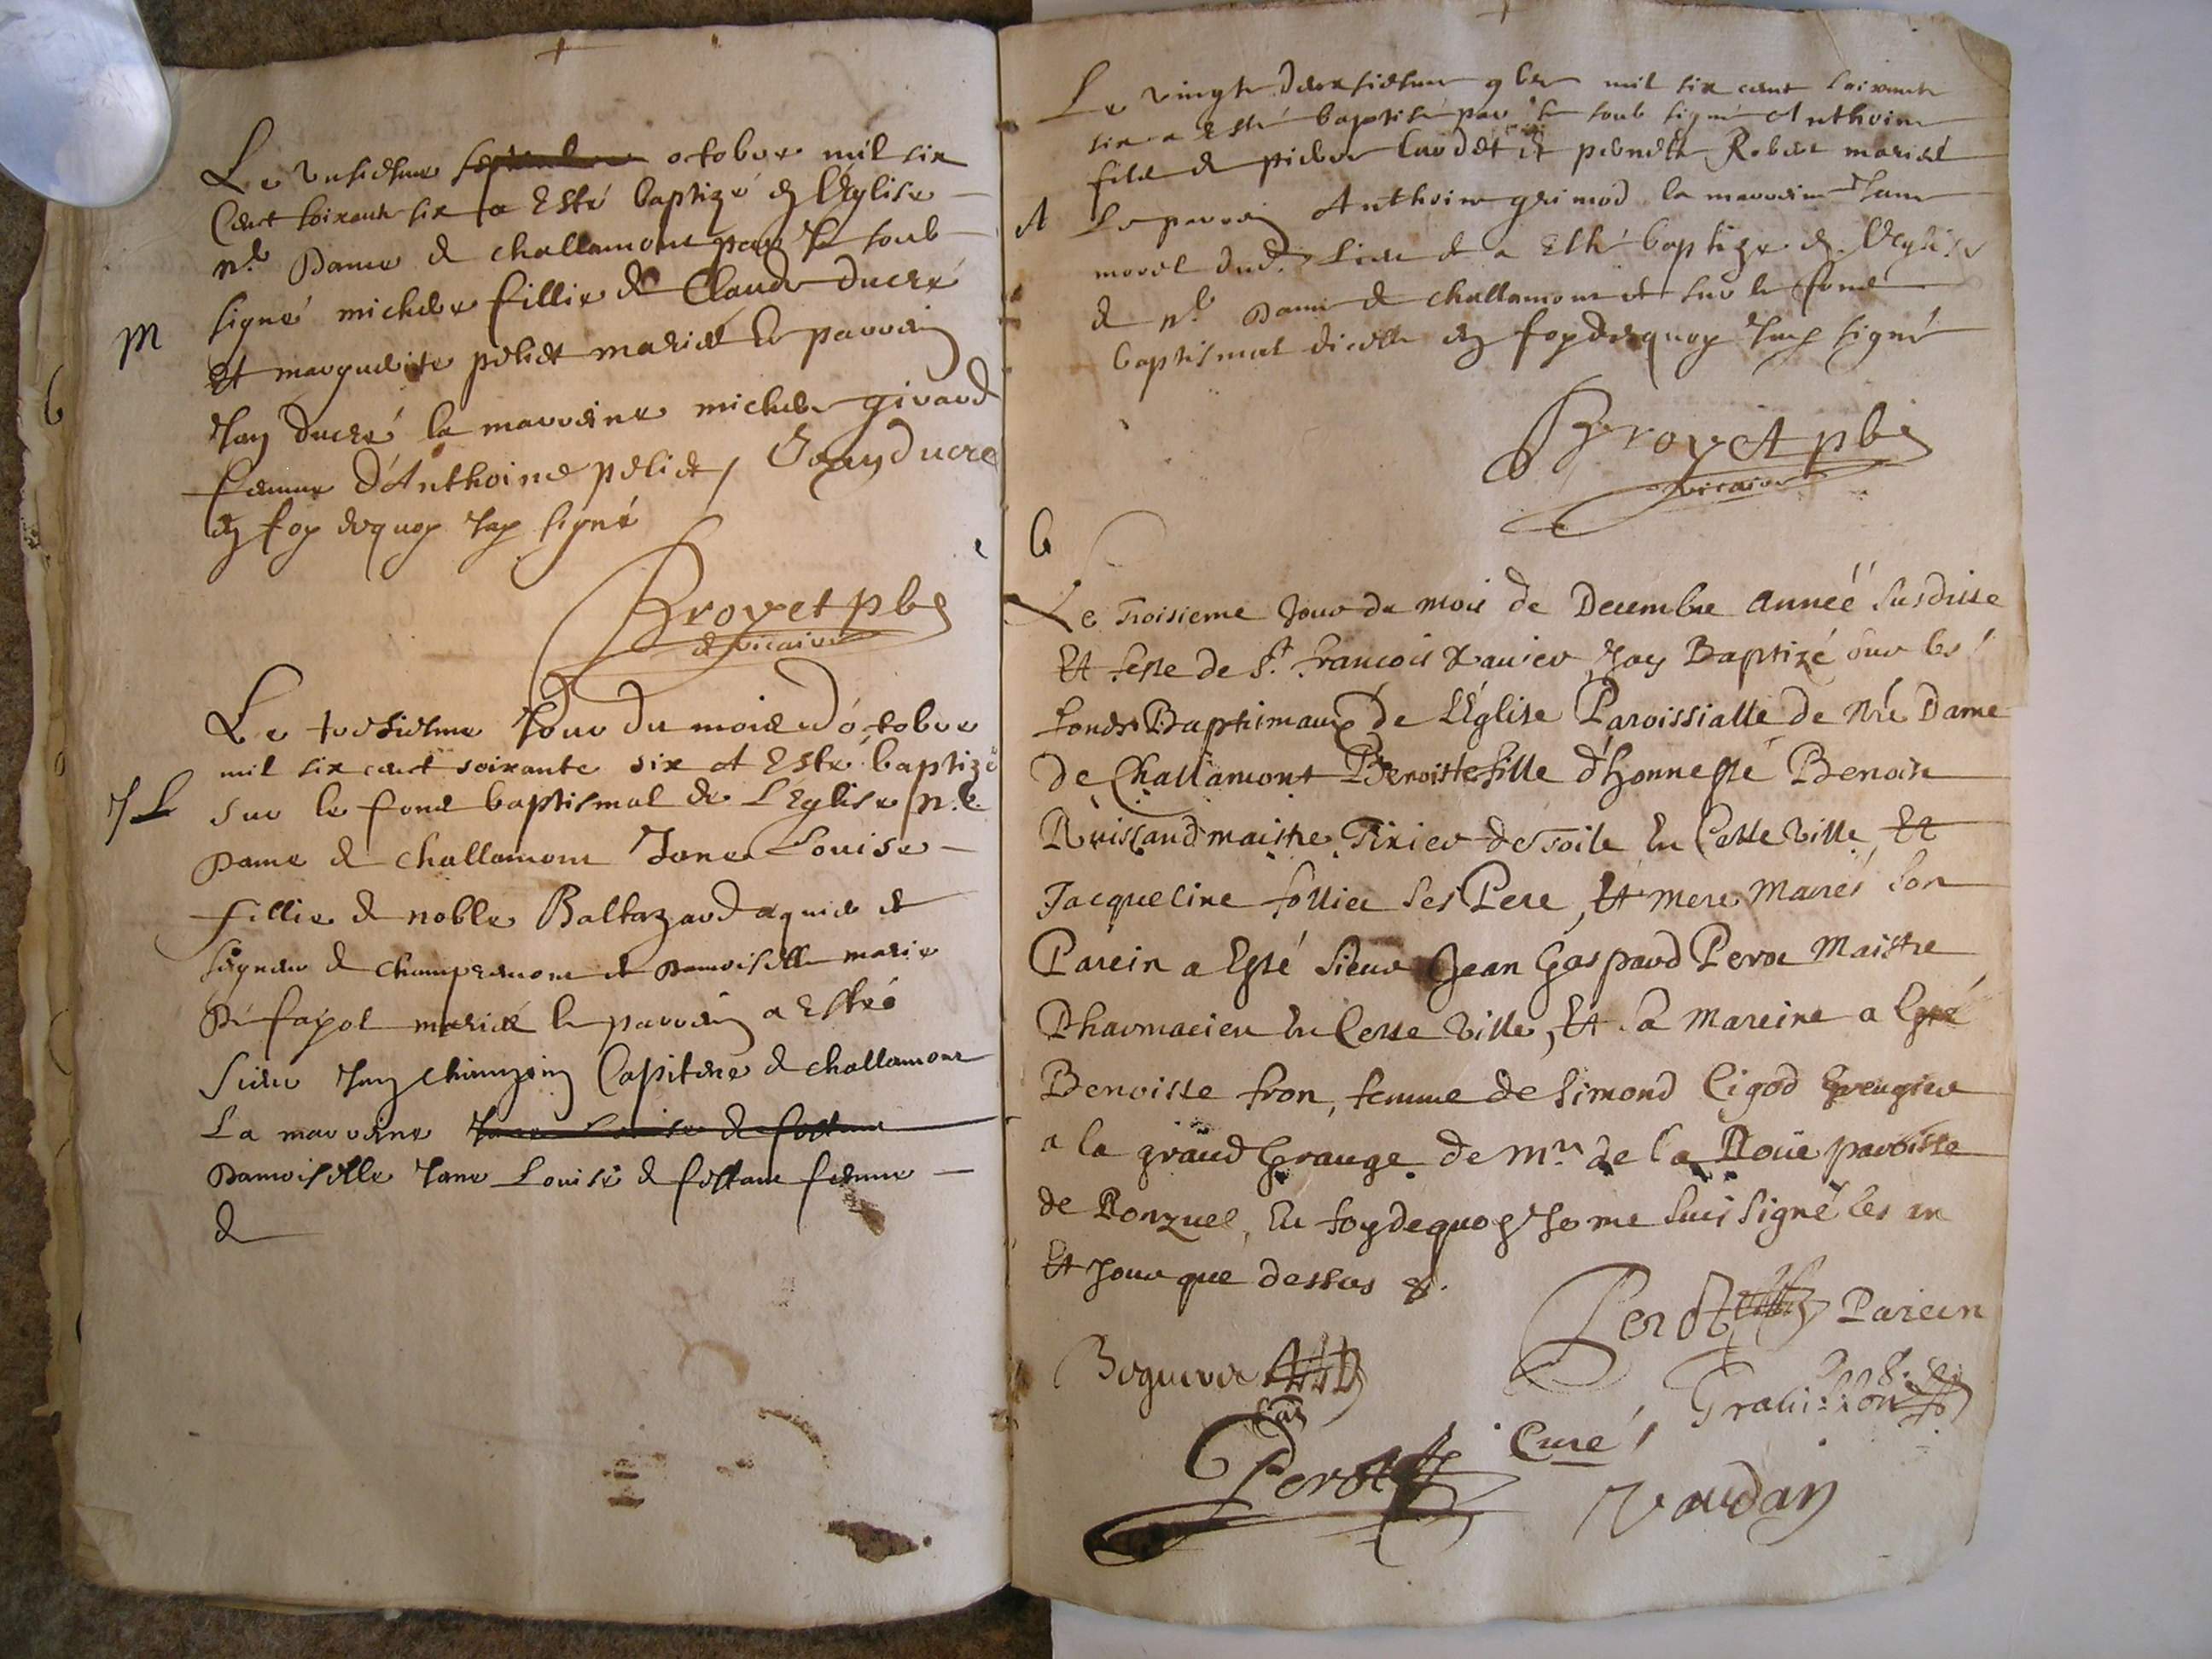 Le unsiesme septembre octobre mil six
Cent soixante six a Esté baptizé en L'Eglise
nre Dame de challamont par Je soub
signé michele fillie de Claude Ducré
M
Et marguerite peliet mariés le parrein
Jan ducré la marreine michele girard
femme d'Anthoine peliet / Jean Ducre
en foy dequoy Jay signé
Brovet pbre
et vicaire
Le tresiesme Jour du mois d'octobre
mil six cent soixante six A Esté baptizé
JL
Sur le fond baptismal de L'Eglise nre
Dame de challamont Jane Louise
fillie de noble Baltazard et
signeur de et Damoiselle marie
De fayol mariés le parrein a Esté
Sieur Jan Capitene de challamont
La marreine Jane Louise de
Damoiselle Jane Louise de femme
de
Le vingt deuxsiesme 9bre mil six cent soixante
six a Esté baptisé par Je soub signé Anthoine
fils de pierre et pernette Robert mariés
A
Le parrein Anthoine grimod la marreine Jane
morel dud. Lieu et a Esté baptize en L'Eglise
de nre Dame de challamont et sur le fond
baptismal dicelle en foy de quoy Jay signé
Brovet pbre
vicaire
b
Le Troisieme Jour du mois de Decembre Année susditte
Et feste de St. francois Xavier Jay Baptizé sur les
fonds Baptimaux de L'Église Paroissialle de Nre Dame
de Challamont Benoiste fille d'honneste Benoist
Ruissand maistre Tixier de Toile En Cette Ville Et
Jacqueline follier ses Pere, Et mere Mariés son
Parein a Esté Sieur Jean Gaspard Perot Maistre
Pharmacien En Cette Ville, Et sa Mareine a Esté
Benoiste fron, femme de Simond Cigod Grengier
a la grand Grange de Mr. de la Roüe paroisse
de Ronzuel, En foy dequoy Je me suis signé les an
Et Jour que dessus &.
Perot Parein
Perot
Curé
Vardan